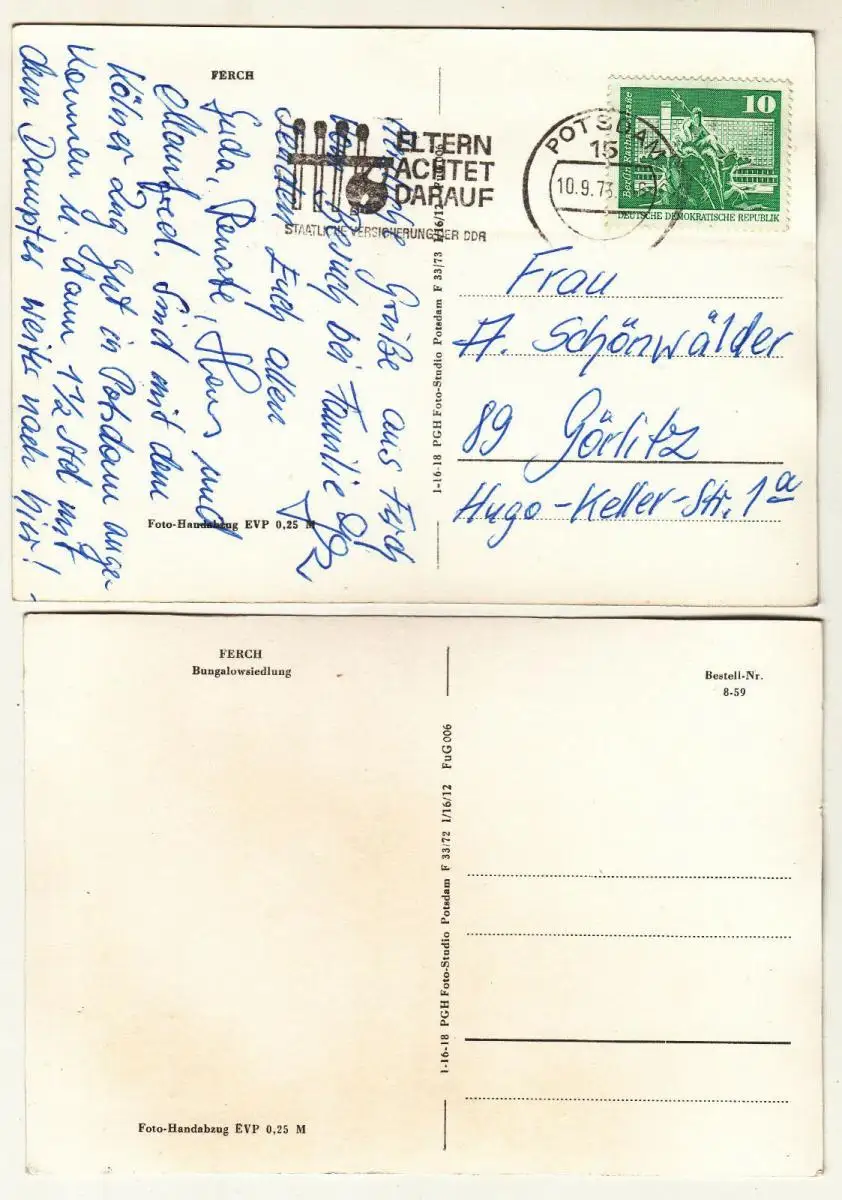 FERCH
Herzliche Grüße aus Ferch
vom Besuch bei Familie
senden Euch allen
Renate, Hans und
Manfred. Sind mit dem
Kölner Zug gut in Potsdam ange-
kommen u. dann 1½ Std mit
dem Dampfer weiter nach hier!
Foto-Handabzug EVP 0,25 M
ELTERN
ACHTET
DARAUF
STAATLICHE VERSICHERUNG DER DDR
1-16-18 PGH Foto-Studio Potsdam F 33/73 I/16/12 FuG 006
POTSDAM
15
10.9.73
10
Berlin Rathausstraße
DEUTSCHE DEMOKRATISCHE REPUBLIK
Frau
A. Schönwälder
89 Görlitz
Hugo-Keller-Str. 1a
FERCH
Bungalowsiedlung
Foto-Handabzug EVP 0,25 M
1-16-18 PGH Foto-Studio Potsdam F 33/72 I/16/12 FuG 006
Bestell-Nr.
8-59